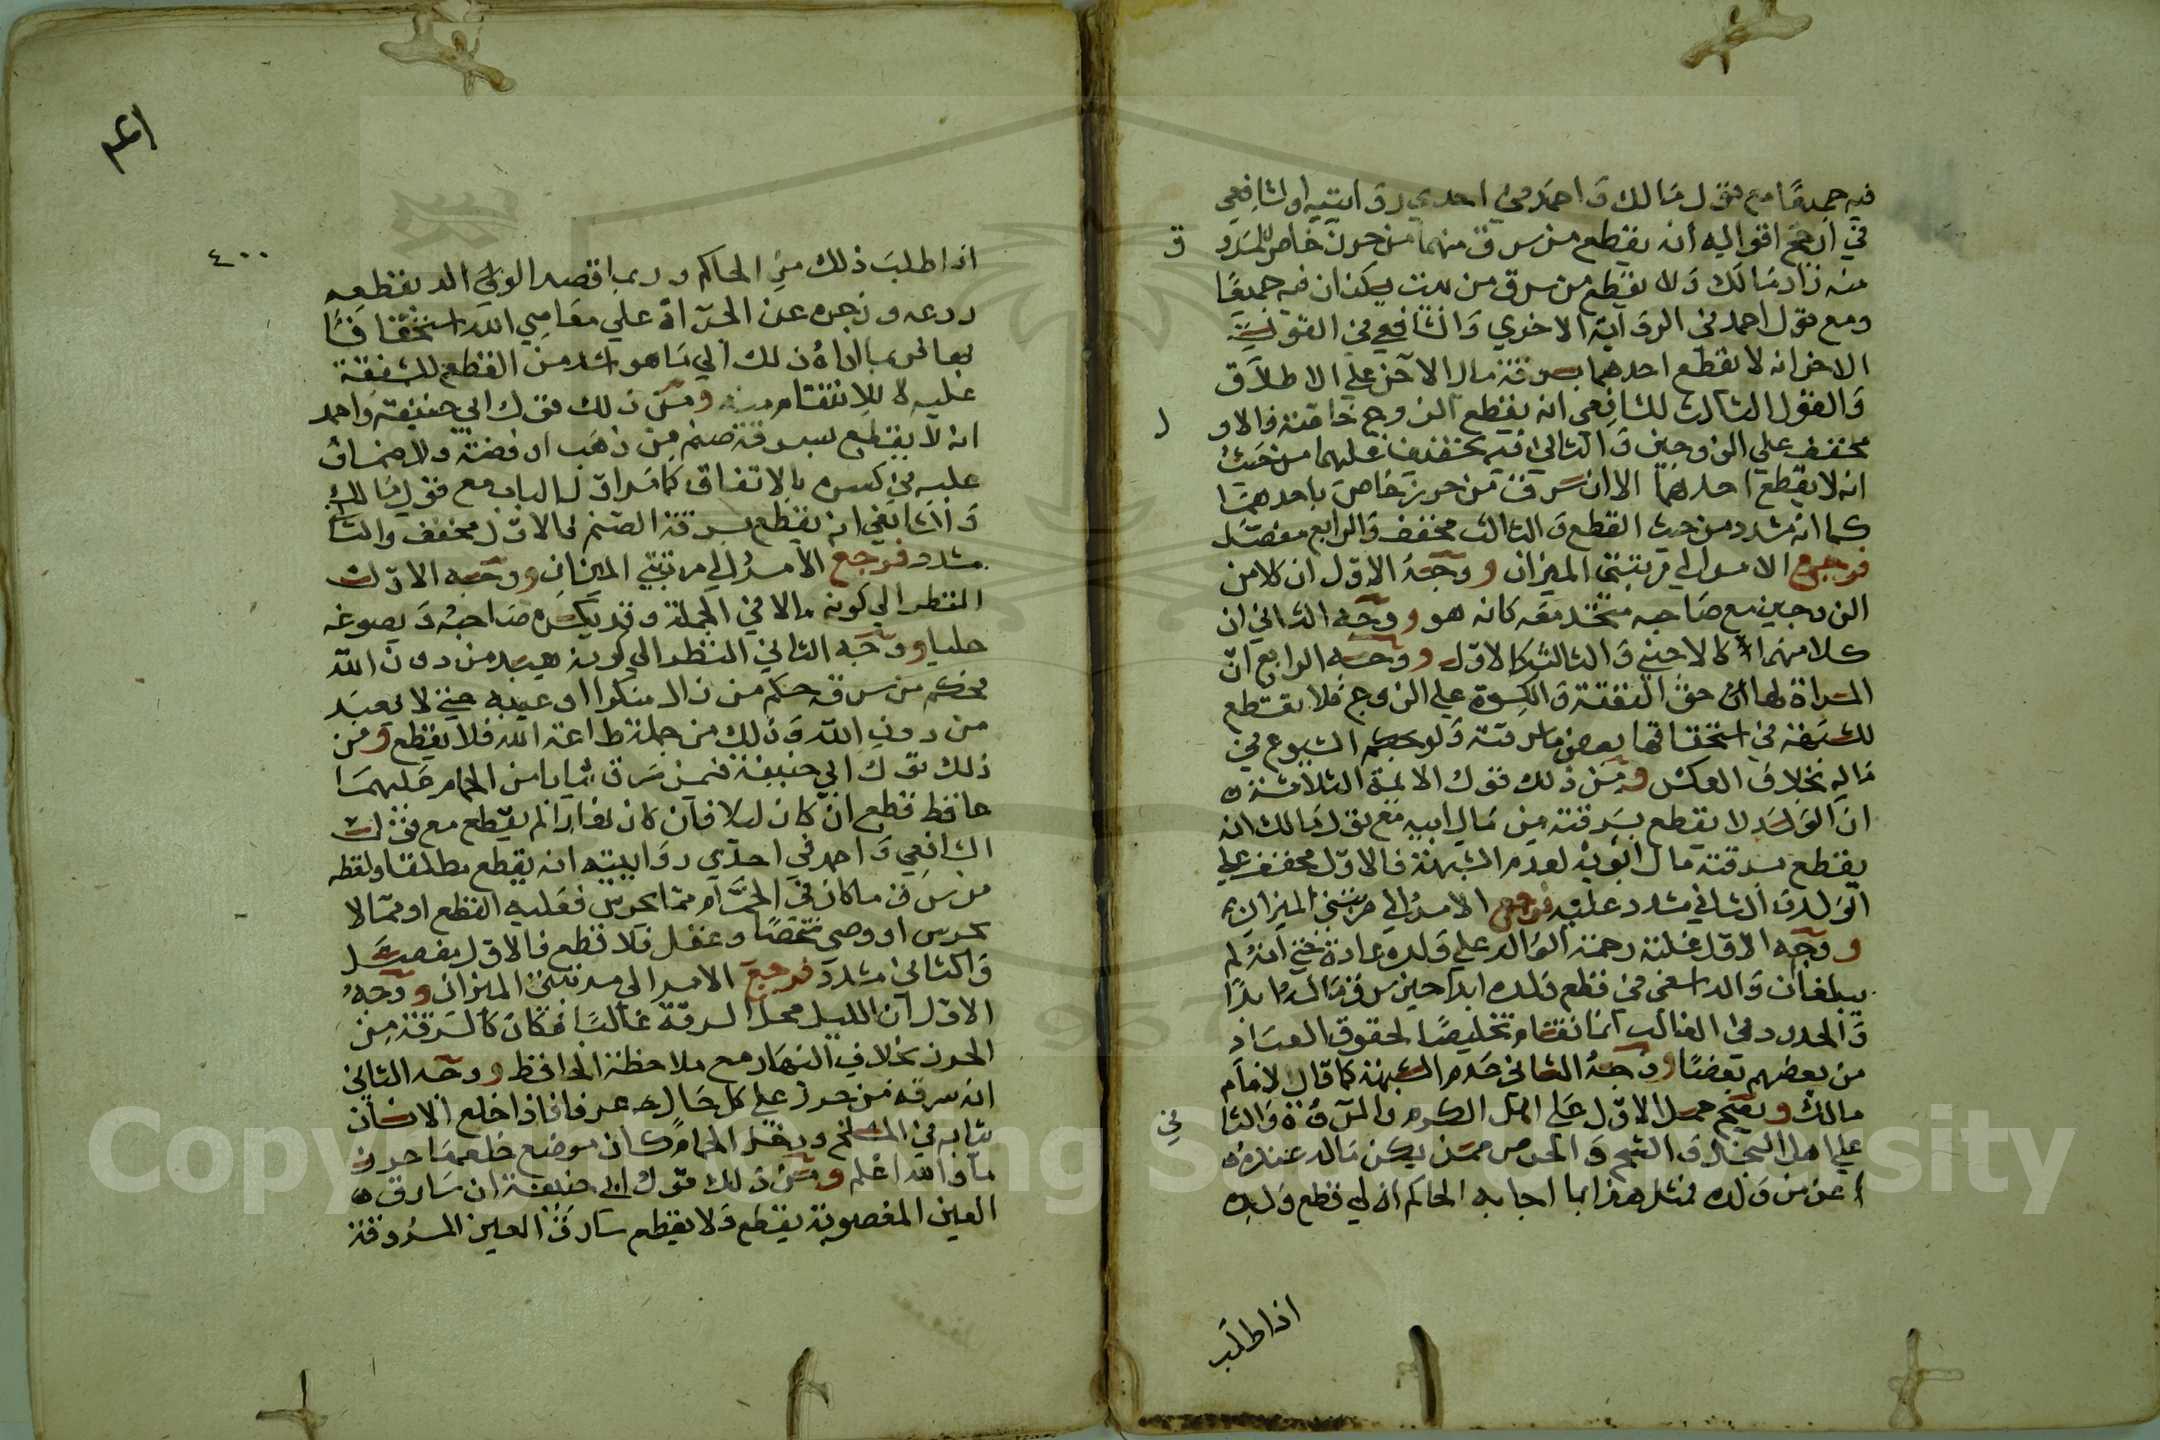 فيه جميعًا مع قول مالك وأحمد في احدي روايتيه والشافعي
في ارجح اقواليه أنه يقطع من سرق منهما من حرز خاص للمسرو
ق
منه زاد مالك ولا يقطع من سرق من بيت يسكنان فيه جميعًا
ومع قول احمد في الرواية الاخري والشافعي في القول
الاخر انه لا يقطع احدهما بسرقة مال الآخر علي الاطلاق
والقول الثالث للشافعي انه يقطع الزوج خاصة فالاو
ل
مخفف علي الزوجين والثاني فيه تخفيف عليهما من حيث
انه لا يقطع احدهما الا ان سرق من حرز خاص باحدهما
كما انه مشدد من حيث القطع والثالث مخفف والرابع مفصل
فرجع الامر الي مرتبتي الميزان ووجه الاول ان كلا من
الزوجين مع صاحبه متحد معه كانه هو ووجه الثاني ان
كلا منهما كالاجنبي والثالث كالاول ووجه الرابع ان
المراة لها حق النفقة والكسوة علي الزوج فلا تقطع
للشبهة في استحقاقها بعض ما سرقته ولو بحكم الشيوع في
ماله بخلاف العكس ومن ذلك قول الائمة الثلاثة
ان الولد لا يقطع بسرقته من مال ابيه مع قول مالك انه
يقطع بسرقة مال ابويه لعدم الشبهة فالاول مخفف علي
الولد والثاني مشدد عليه فرجع الامر الي مرتبتي الميزان
ووجه الاول غلبة رحمة الوالد علي ولده عادة حتي انه لم
يبلغنا ان والدا سعي في قطع ولده ابدا حين سرق ماله ابدًا
والحدود في الغالب انما تقام تخليصًا لحقوق العباد
من بعضهم بعضًا ووجه الثاني عدم الشبهة كما قال الامام
مالك ويصح حمل الاول علي اهل الكرم والمروة والثا
ني
علي اهل البخل والشح والحرص ممن يكن ماله عنده
أعز من ولده فمثل هذا بما اجابه الحاكم الي قطع ولده
اذا طلب
٤٠٠
اذا طلب ذلك من الحاكم وربما قصد الولي الد بقطعه
ردعه وزجره عن الجراة علي معاصي الله استخفافًا
بها فربما اداه ذلك الي ما هو اشد من القطع للشفقة
عليه لا للانتقام منه ومن ذلك قول ابي حنيفة واحمد
انه لا يقطع بسرقة صنم من ذهب او فضة ولا ضمان
عليه في كسره بالاتفاق كما مر اول الباب مع قول مالك
والشافعي انه يقطع بسرقة الصنم فالاول مخفف والثا
ني
مشدد فرجع الامر الي مرتبتي الميزان ووجه الاول
النظر الي كونه مالا في الجملة وقد يكسره صاحبه ويصوغه
حليا ووجه الثاني النظر الي كونه يعبد من دون الله
فحكم من سرقه حكم من ازال منكرا او غيبه حتي لا يعبد
من دون الله وذلك من جملة طاعة الله فلا يقطع ومن
ذلك قول ابي حنيفة فيمن سرق ثيابا من الحمام عليهما
حافظ قطع ان كان ليلا فان كان نهارا لم يقطع مع قول
الشافعي واحمد في احدي روايتيه انه يقطع مطلقا ولفظه
من سرق ما كان في الحمام مما يحرس فعليه القطع او مما لا
يحرس او وصي شخصًا وغفل فلا قطع فالاول مفصل
والثاني مشدد فرجع الامر الي مرتبتي الميزان ووجه
الاول ان الليل محل السرقة غالبًا فكان كالسرقة من
الحرز بخلاف النهار مع ملاحظة الحافظ ووجه الثاني
انه سرقة من حرز علي كل حال عرفا فاذا خلع الانسان
ثيابه في المسلخ ودخل الحمام كان موضع خلعها حرز
ها والله اعلم ومن ذلك قول ابي حنيفة ان سارق
العين المغصوبة يقطع ولا يقطع سارق العين المسروقة